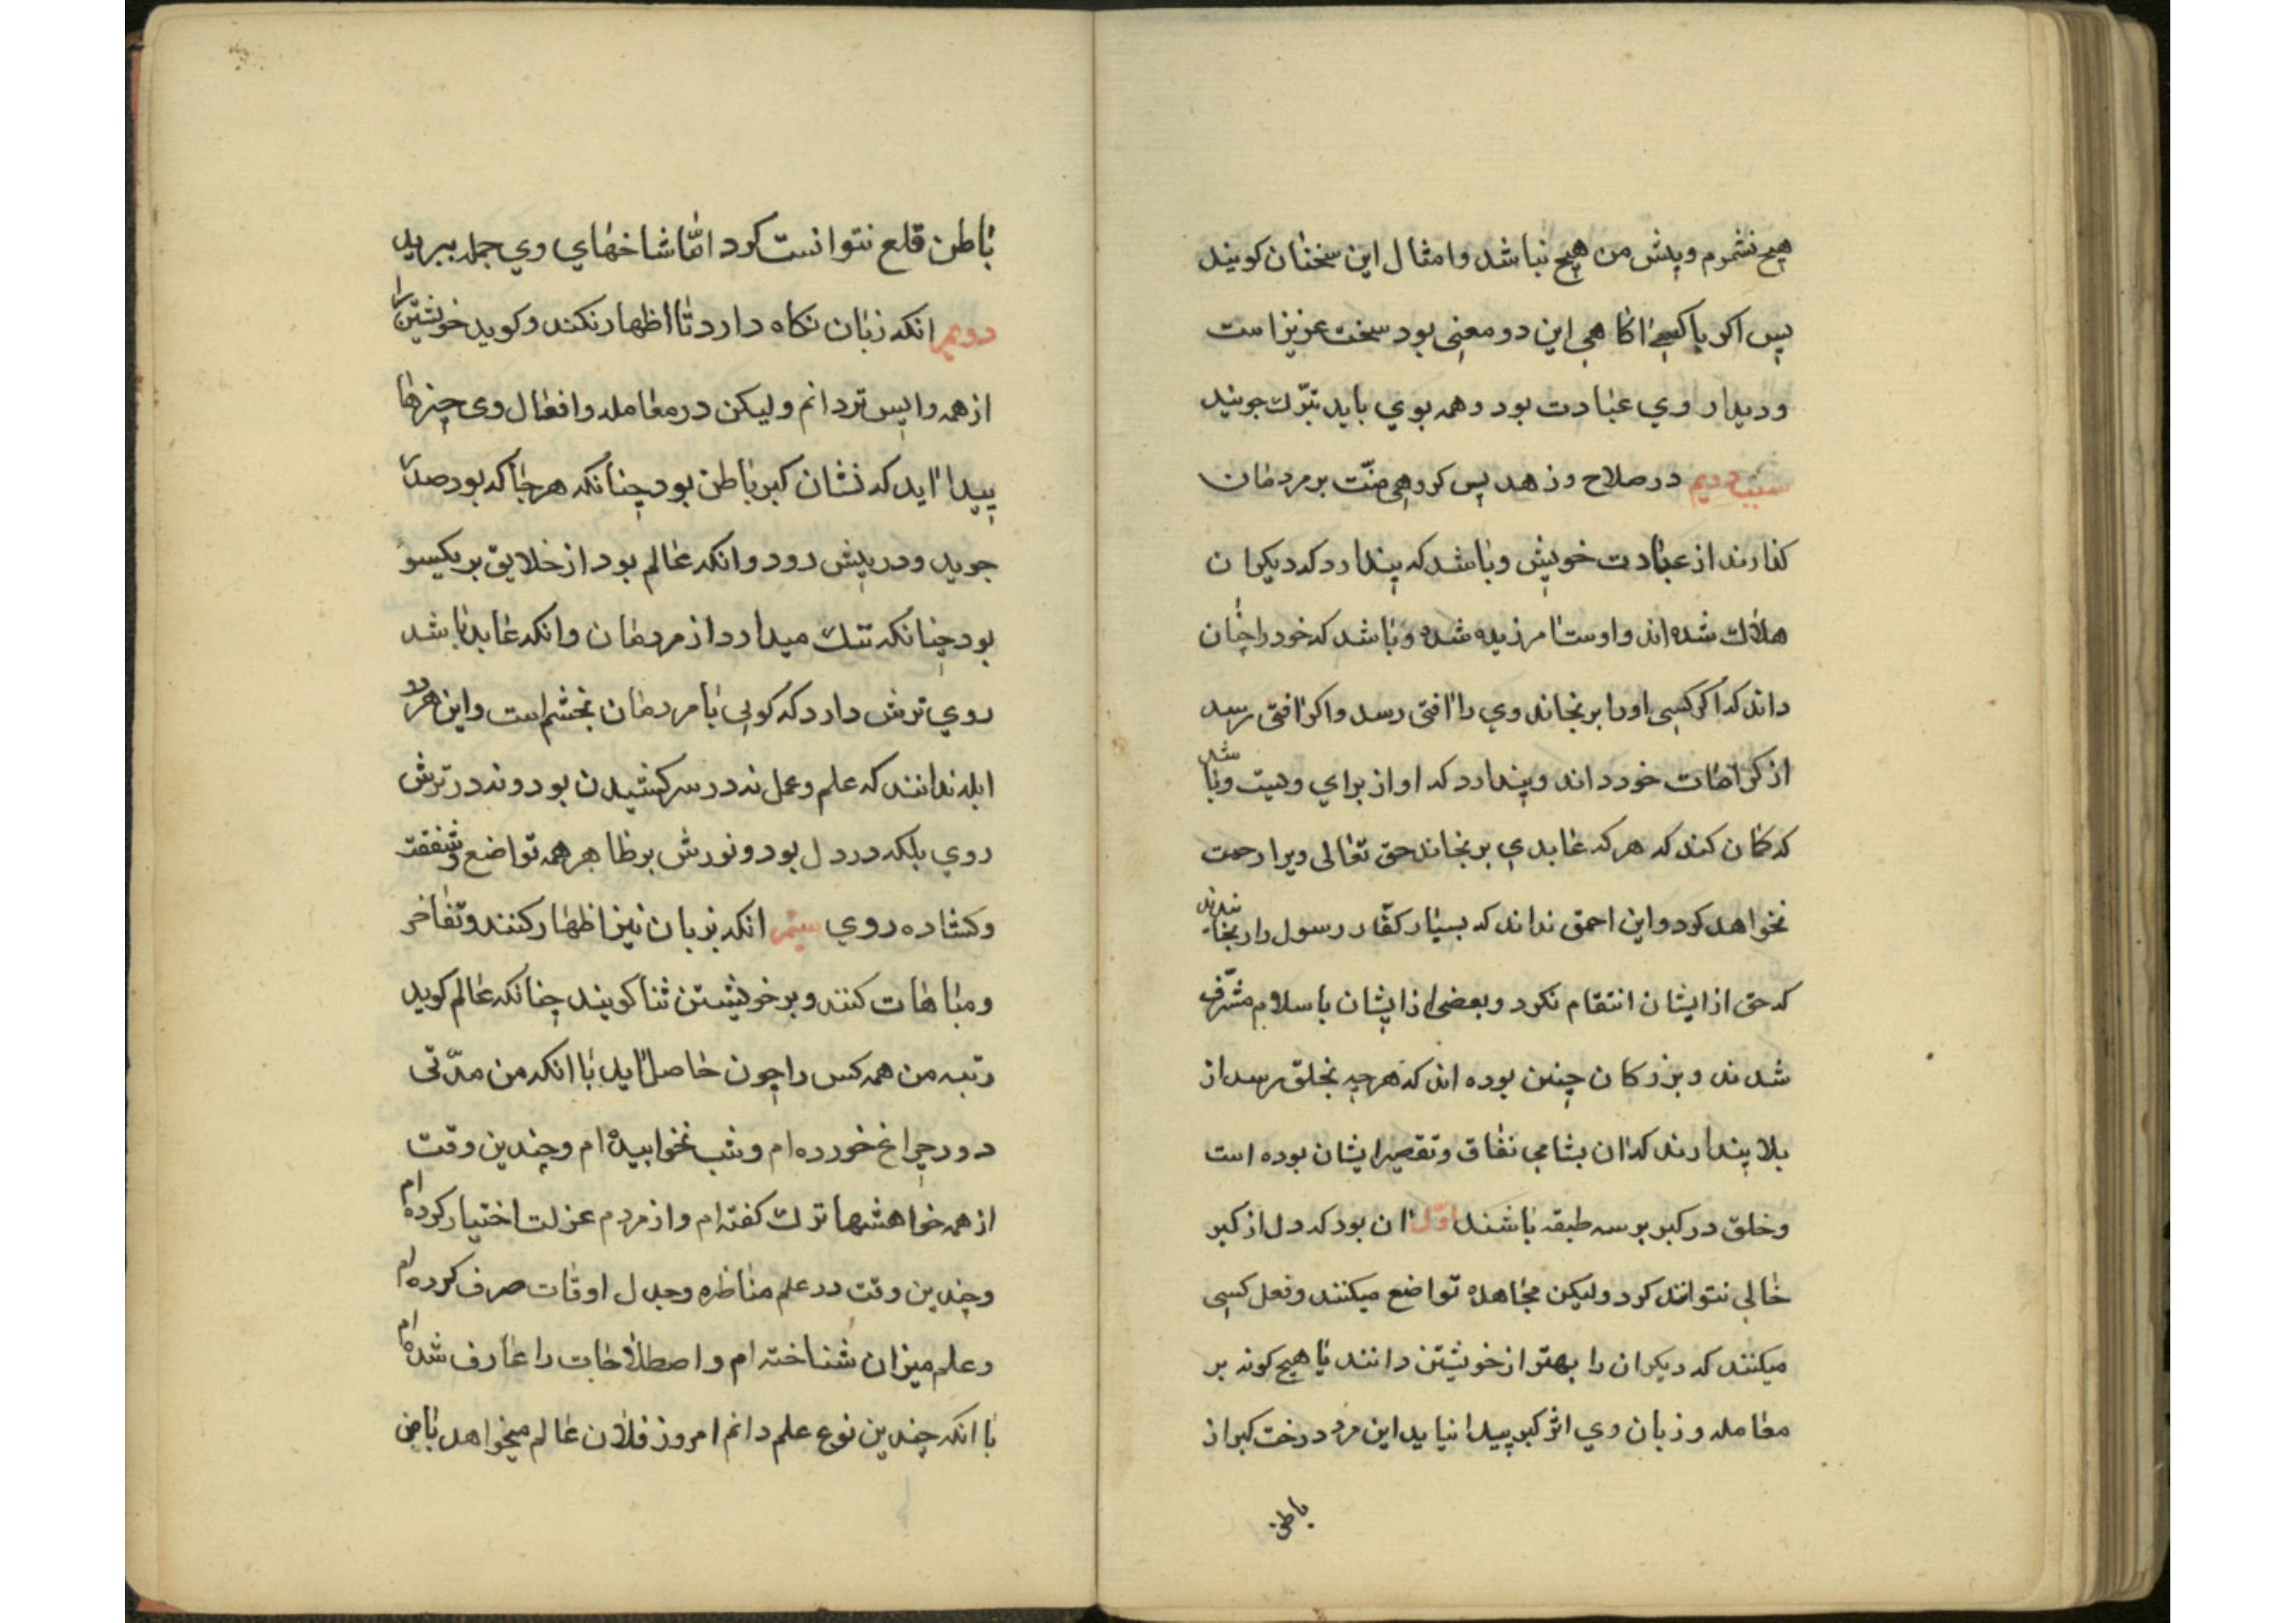 هیچ نشمرم وپیش من هیچ نباشد وامثال این سخنان کویند
پس اکر باکسی اکاهی این دو معنی بود سخت عزیز است
ودیدار وي عبادت بود وهمه بوي باید تبرّك جویند
سبب دویم در صلاح وزهد پس کروهی منّت بر مردمان
کذارند از عبادت خویش وباشد که پندارد که دیکران
هلاك شده اند واوست امرزیده شده وباشد که خود را چنان
داند که اکر کسی اورا برنجاند وي را افتی رسد واکر افتی رسد
از کرامات خود داند وپندارد که او از براي وهیت وباشد
که کمان کند که هرکه عابدي برنجاند حق تعالی ویرا رحمت
نخواهد کرد واین احمق نداند که بسیار کفّار رسول را رنجانیدند
که حق از ایشان انتقام نکرد وبعضی از ایشان باسلام مشرّف
شدند وبزرکان چنین بوده اند که هر چه بخلق رسد از
بلا پندارند که ان بشامی نفاق وتقصیر ایشان بوده است
وخلق در کبر بر سه طبقه باشند اوّل ان بود که دل از کبر
خالی نتوانند کرد ولیکن مجاهده تواضع میکنند وفعل کسی
میکنند که دیکران را بهتر از خویشتن دانند تا هیچ کونه بر
معامله وزبان وي اثر کبر پیدا نیاید این مرد درخت کبر از
باطن
باطن قلع نتوانست کرد امّا شاخهاي وي جمله ببرید
دویم انکه زبان نکاه دارد تا اظهار نکند وکوید خویشتن را
از همه واپس تر دانم ولیکن در معامله وافعال وی چیزها
پیدا اید که نشان کبر باطن بود چنانکه هر جا که بود صدر
جوید ودر پیش رود وانکه عالم بود از خلایق بر یکیسو
بود چنانکه ننك میدارد از مردمان وانکه عابد باشد
روي ترش دارد که کویی با مردمان بخشم است واین هر دو
ابله ندانند که علم وعمل نه در سر کشیدن بود ونه در ترش
روي بلکه در دل بود ونورش بر ظاهر همه تواضع وشفقت
وکشاده روي سیّم انکه بزبان نیز اظهار کنند وتفاخر
ومباهات کنند وبر خویشتن ثنا کویند چنانکه عالم کوید
رتبه من همه کس را چون حاصل اید با انکه من مدّتی
دود چراغ خورده ام وشب نخوابیده ام وچندین وقت
از همه خواهشها ترك کفته ام واز مردم عزلت اختیار کرده ام
وچندین وقت در علم مناظره وجدل اوقات صرف کرده ام
وعلم میزان شناخته ام واصطلاحات را عارف شده ام
با انکه چندین نوع علم دانم امروز فلان عالم میخواهد با من